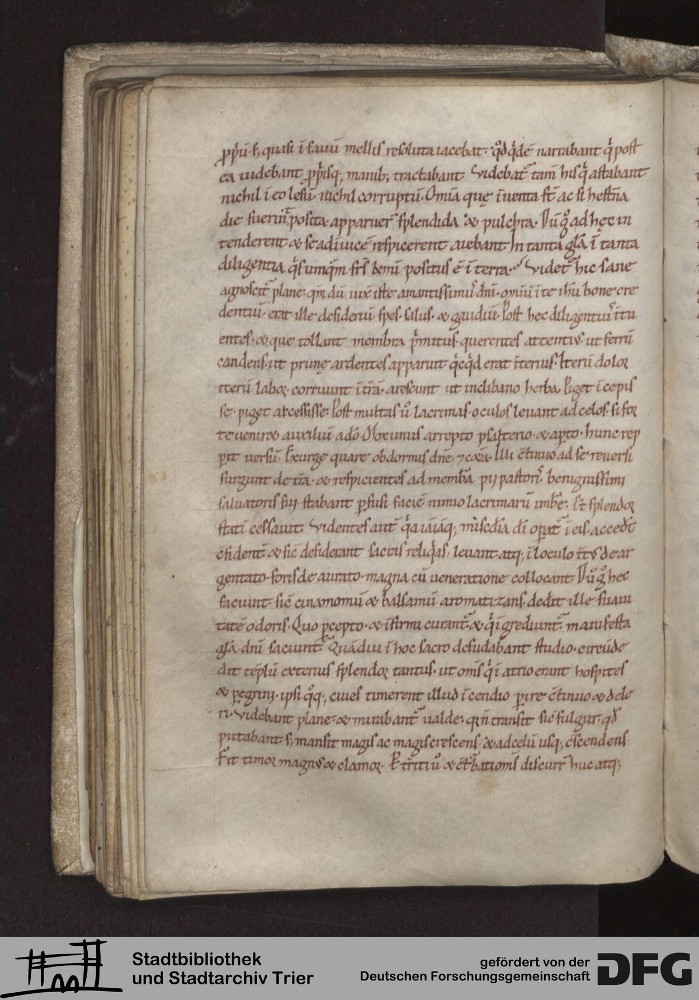 pp̄iū s; quasi ī fauū mellis resoluta iacebat. qđ qđē narrabant q̄ post
ea uidebant pp̄iisq; manib; tractabant Videbat̄ tam̄ his q̄ astabant
nichil ī eo lesū. nichil corruptū. Om̄ia que īuenta st̄ ac si hest̄na
die fuerint posita apparuer̄ splendida & pulchra. Dū g̊ ad hec in
tenderent & se adīuicē respicerent aiebant In tanta gl̄a ī tanta
diligentia q̄s umq̄m frs̄ bonū positus ē ī terra. Videt̄ hic sane
agnoscit̄ plane. qm̄ dū uix̄ iste amantissimus dn̄i. om̄iū ī te ihū bone cre
dentiū. erat ille desideriū spes. salus. & gaudiū. Post hec diligentius ītu
entes. & que tollant membra p̄mitus. querentes attentius. ut ferrū
candens. ut prune ardentes apparuit q̄cq̄d erat īterius. Iterū dolor
iterū labor. corruunt ī t̄rā. arescunt ut in clibano herba. Piget īcepis
se. piget accessisse. Post multas ū lacrimas. oculos leuant ad celos. si for
te ueniret auxiliū a dō. Mox unus arrepto psalterio. & apto. hunc rep
perit uersū. Exurge quare obdormis dn̄e. Illi ctinuo ad se reuersi
surgunt de t̄ra. & respicientes ad membra pii pastoris benignissimi
saluatoris sui stabant p̄fusi faciē nimio lacrimarū imbre. Et splendor
statī cessauit. Videntes aut̄ q̄a iāiāq; mīscdīa dī operat̄ ī eis. accedt̄
c̄fident̄. & sic̄ desiderant sacras reliq̄as. leuant. atq; ī loculo ītus de ar
gentato. foris deaurato. magna cū ueneratione collocant Dū g̊ hec
faciunt sic̄ cinamomū & balsamū aromatizans. dedit ille suaui
tatē odoris. Quo p̄cepto. & īfirmi curant̄. & q̄ īgrediunt̄. manifesta
gl̄a dn̄i saciunt̄. Quādiu ī hoc sacro desudabant studio. circūde
dit tēplū exterius splendor tantus. ut oms̄ q̄ ī atrio erant hospites
& pegrini. ipsi q̊q; ciues timerent illud īcendio perire c̄tinuo & dele
ri. Videbant plane. & mirabant̄ ualde; q̄n transīt sic̄ fulgur. qđ
putabant s; mansit magis ac magis crescens. & ad celū usq; c̄scendens
Fit timor magnus & clamor. Et̄rriti ū & ct̄batioms̄ discurr̄ huc atq;
Stadtbibliothek
und Stadtarchiv Trier
gefördert von der
Deutschen Forschungsgemeinschaft
DFG